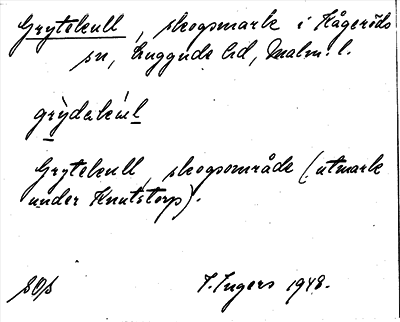 Grytekull, skogsmark i Kågeröds
sn, Luggude hd, Malm. l.
grỳdakúl
Grytekull, skogsområde (utmark
under Knutstorp).
I. Ingers 1948.